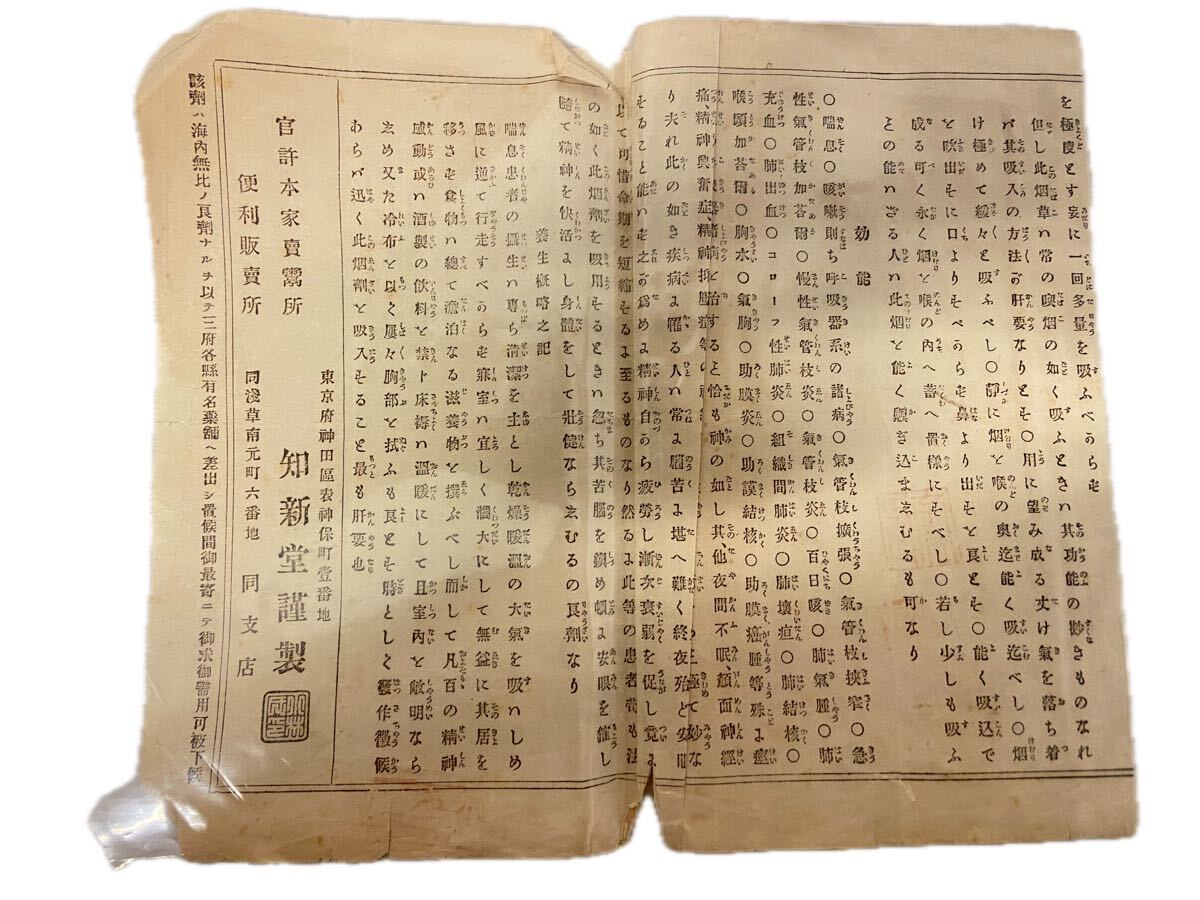 を極度とす妄に一回多量を吸ふべからず
但し此烟草ハ常の喫烟の如く吸ふときハ其功能の尠きものなれ
バ其吸入の方法が肝要なりとす〇用に望み成る丈け氣を落ち着
け極めて緩々と吸ふべし〇靜に烟を喉の奥迄能く吸迄べし〇烟
を吹出すに口よりすべからず鼻より出すを良とす〇能く吸込で
成る可く永く烟を喉の内へ蓄へ置樣にすべし〇若し少しも吸ふ
との能ハざる人ハ此烟を能く
効能
〇喘息〇咳嗽則ち呼吸器系の諸病〇氣管枝擴張〇氣管枝挾窄〇急
性氣管枝加荅爾〇慢性氣管枝炎〇氣管枝炎〇百日咳〇肺氣腫〇肺
充血〇肺出血〇コローフ性肺炎〇組織間肺炎〇肺壞疽〇肺結核〇
喉頭加荅爾〇胸水〇氣胸〇肋膜炎〇肋膜結核〇肋膜癌腫等殊よ痙
痛、精神興奮症、精神抑壓症等の
諸病を治すると恰も神の如し其他夜間不眠、顔面神經
極て妙な
り夫れ此の如き疾病よ罹る人ハ常よ腦苦よ堪へ難く終夜殆と安眠
することを能ハず之が爲めよ精神自から疲勞し漸次衰弱を促し竟よ
以て可惜命期を短縮するよ至るものなり然るよ此等の患者嘗も法
の如く此烟劑を吸用するときハ忽ち其苦腦を鎭め頓よ安眠を催し
隨て精神を快活よし身體をして壯健ならしむるの良劑なり
養生概略之記
喘息患者の攝生ハ專ら清潔を主とし乾燥暖溫の大氣を吸ハしめ
風に逆て行走すべからず寐室ハ宜しく濶大にして無益に其居を
移さず食物ハ總て澹泊なる滋養物を撰ぶべし而して凡百の精神
感動或ハ酒製の飲料を禁ト床褥ハ溫暖にして且室内を敞明なら
しめ又た冷布を以て屢々胸部を拭ふも良とす時として發作徵候
あらバ迅く此烟劑を吸入することを最も肝要也
官許本家賣鬻所
東京府神田區表神保町壹番地
知新堂謹製
便利販賣所
同淺草南元町六番地 同支店
該劑ハ海内無比ノ良劑ナルヲ以テ三府各縣有名藥舖ヘ差出シ置候間御最寄ニテ御求御需用可被下候